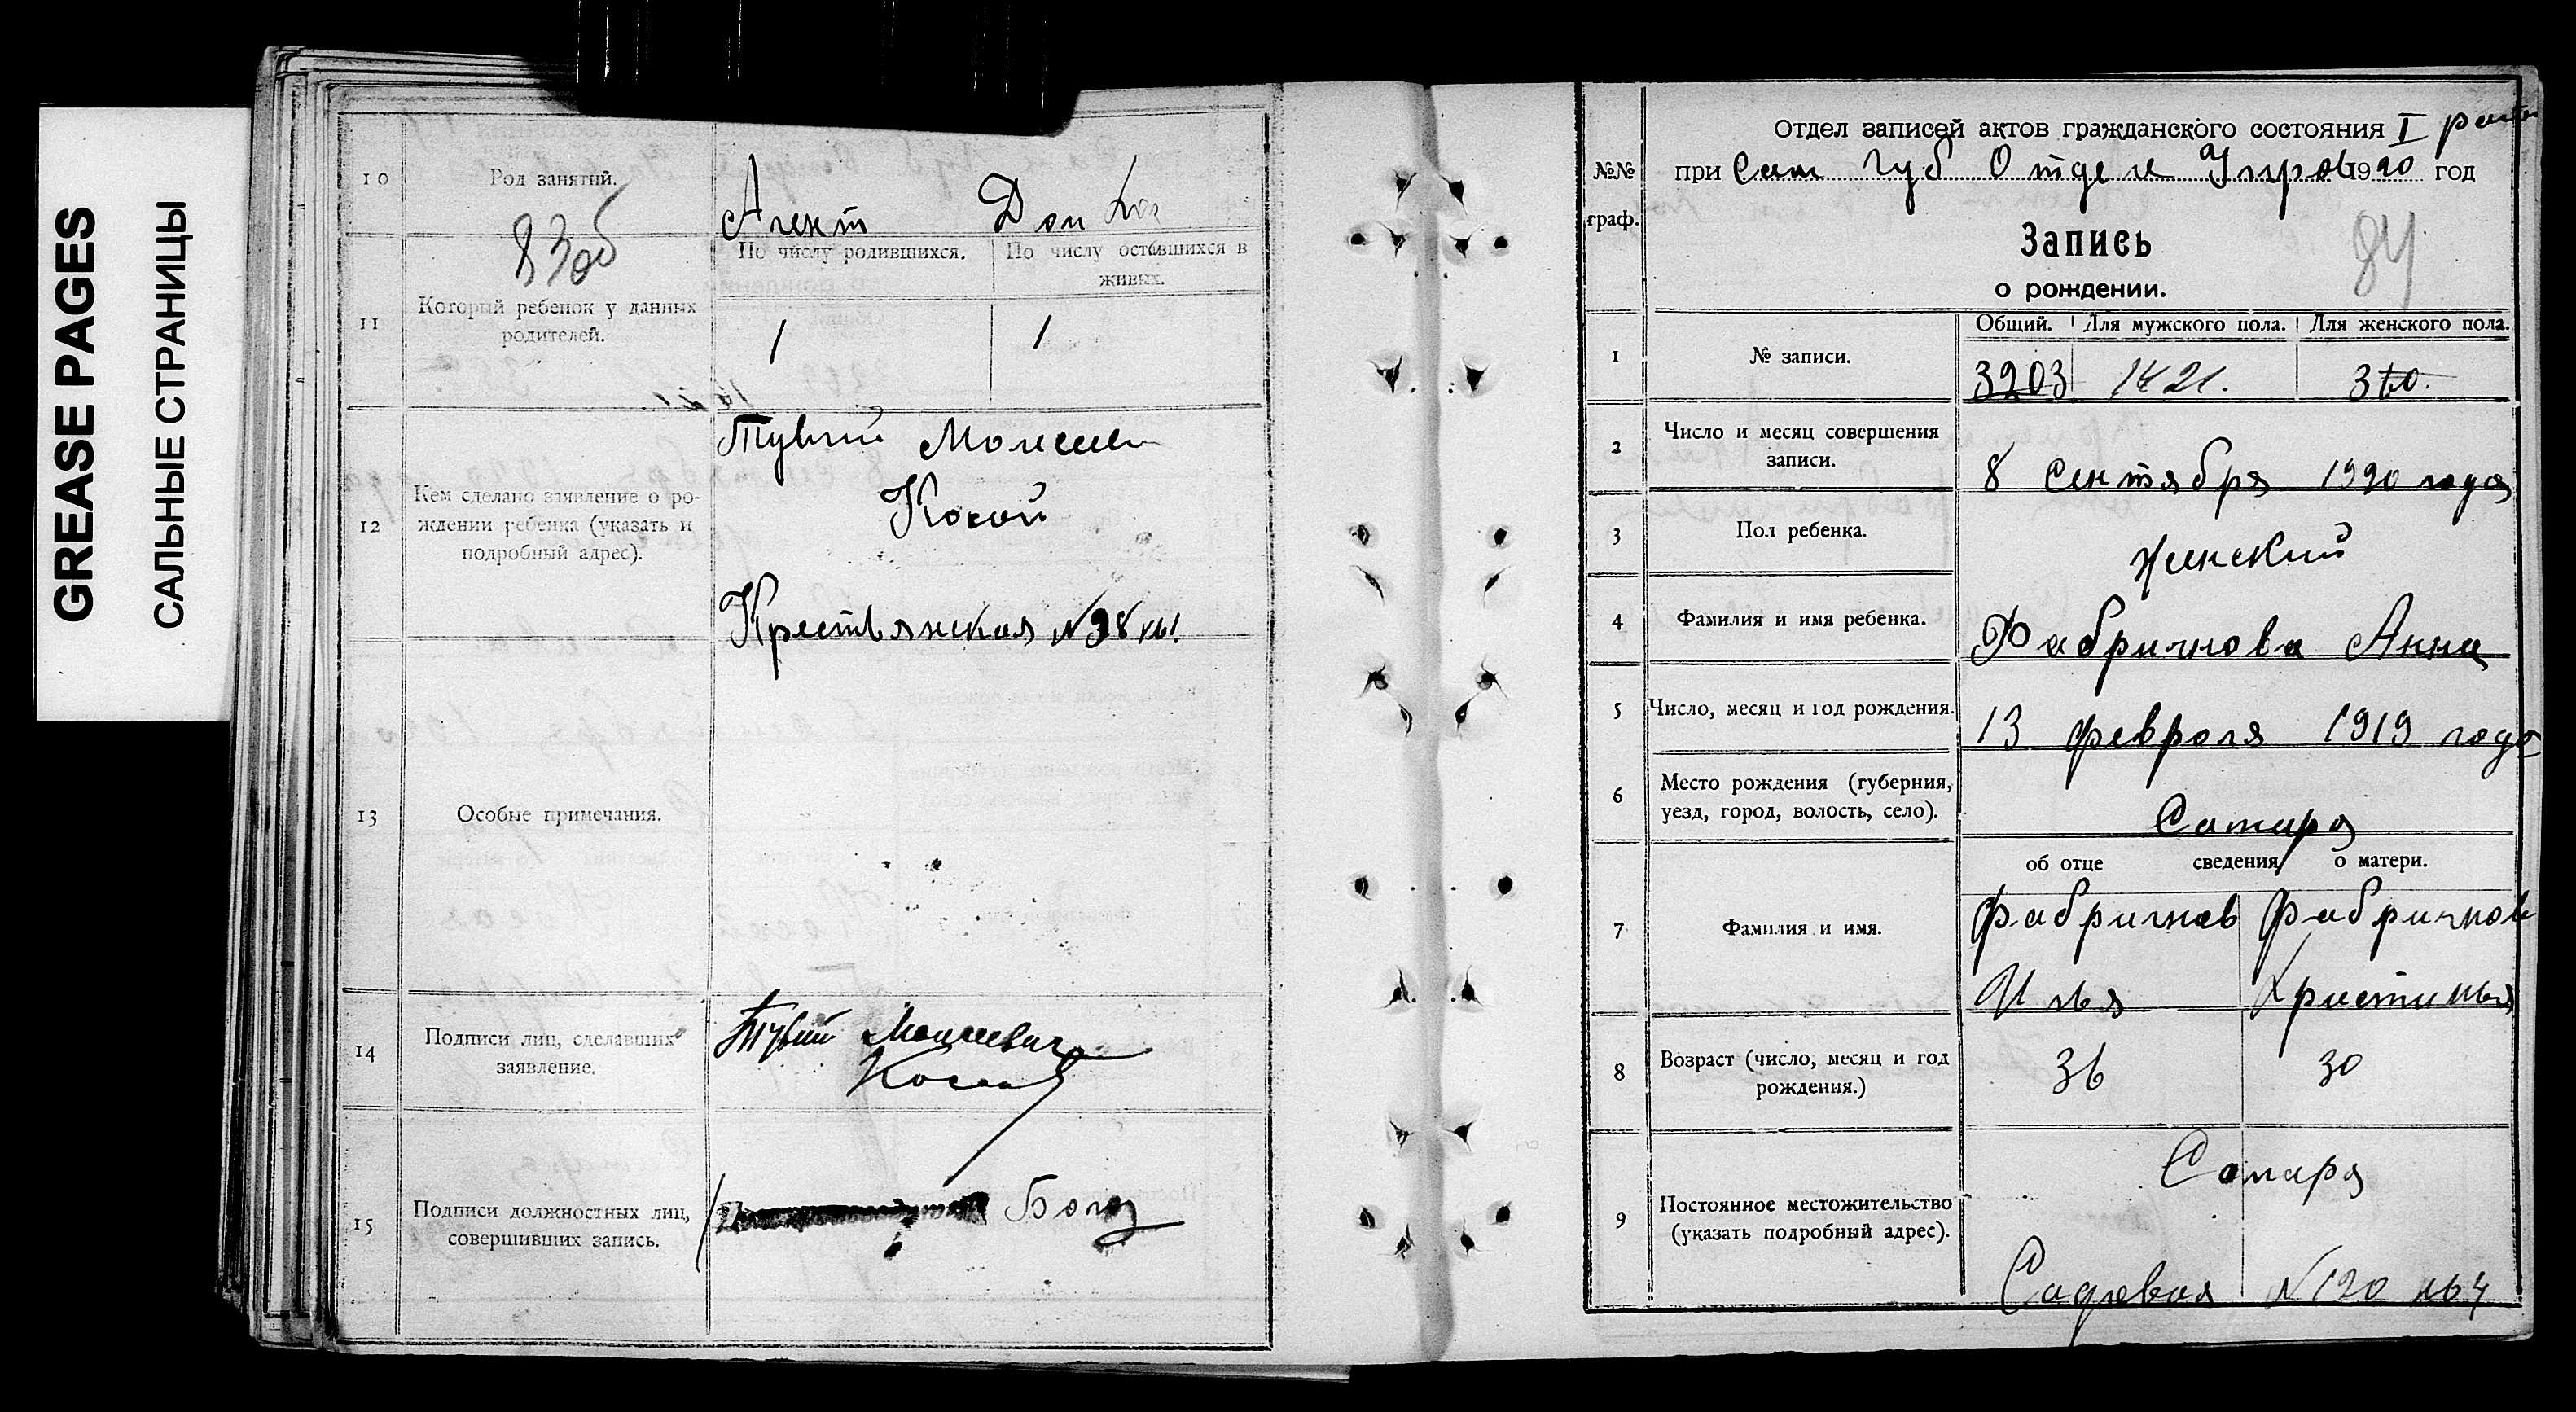 GREASE PAGES
САЛЬНЫЕ СТРАНИЦЫ
10
Род занятий.
Агент
Дом
83об
11
Который ребенок у данных
родителей.
По числу родившихся.
По числу оставшихся в
живых.
1
1
12
Кем сделано заявление о ро-
ждении ребенка (указать и
подробный адрес).
Тувий
Косой
Крестьянская
13
Особые примечания.
14
Подписи лиц, сделавших
заявление.
Тувий Моисеевич
15
Подписи должностных лиц,
совершивших запись.
№№
граф.
Отдел записей актов гражданского состояния I
при Сам Губ Отделе Упров 1920 год
Запись
о рождении.
84
1
№ записи.
Общий.
Для мужского пола.
Для женского пола.
3203
1421.
2
Число и месяц совершения
записи.
8 сентября 1920 года
3
Пол ребенка.
женский
4
Фамилия и имя ребенка.
Фабричнова Анна
5
Число, месяц и год рождения.
13 февраля 1919 года
6
Место рождения (губерния,
уезд, город, волость, село).
Самара
об отце сведения о матери.
7
Фамилия и имя.
Фабричнов
Илья
Фабричнов
Христинья
8
Возраст (число, месяц и год
рождения.)
36
30
9
Постоянное местожительство
(указать подробный адрес).
Самара
Садовая №120